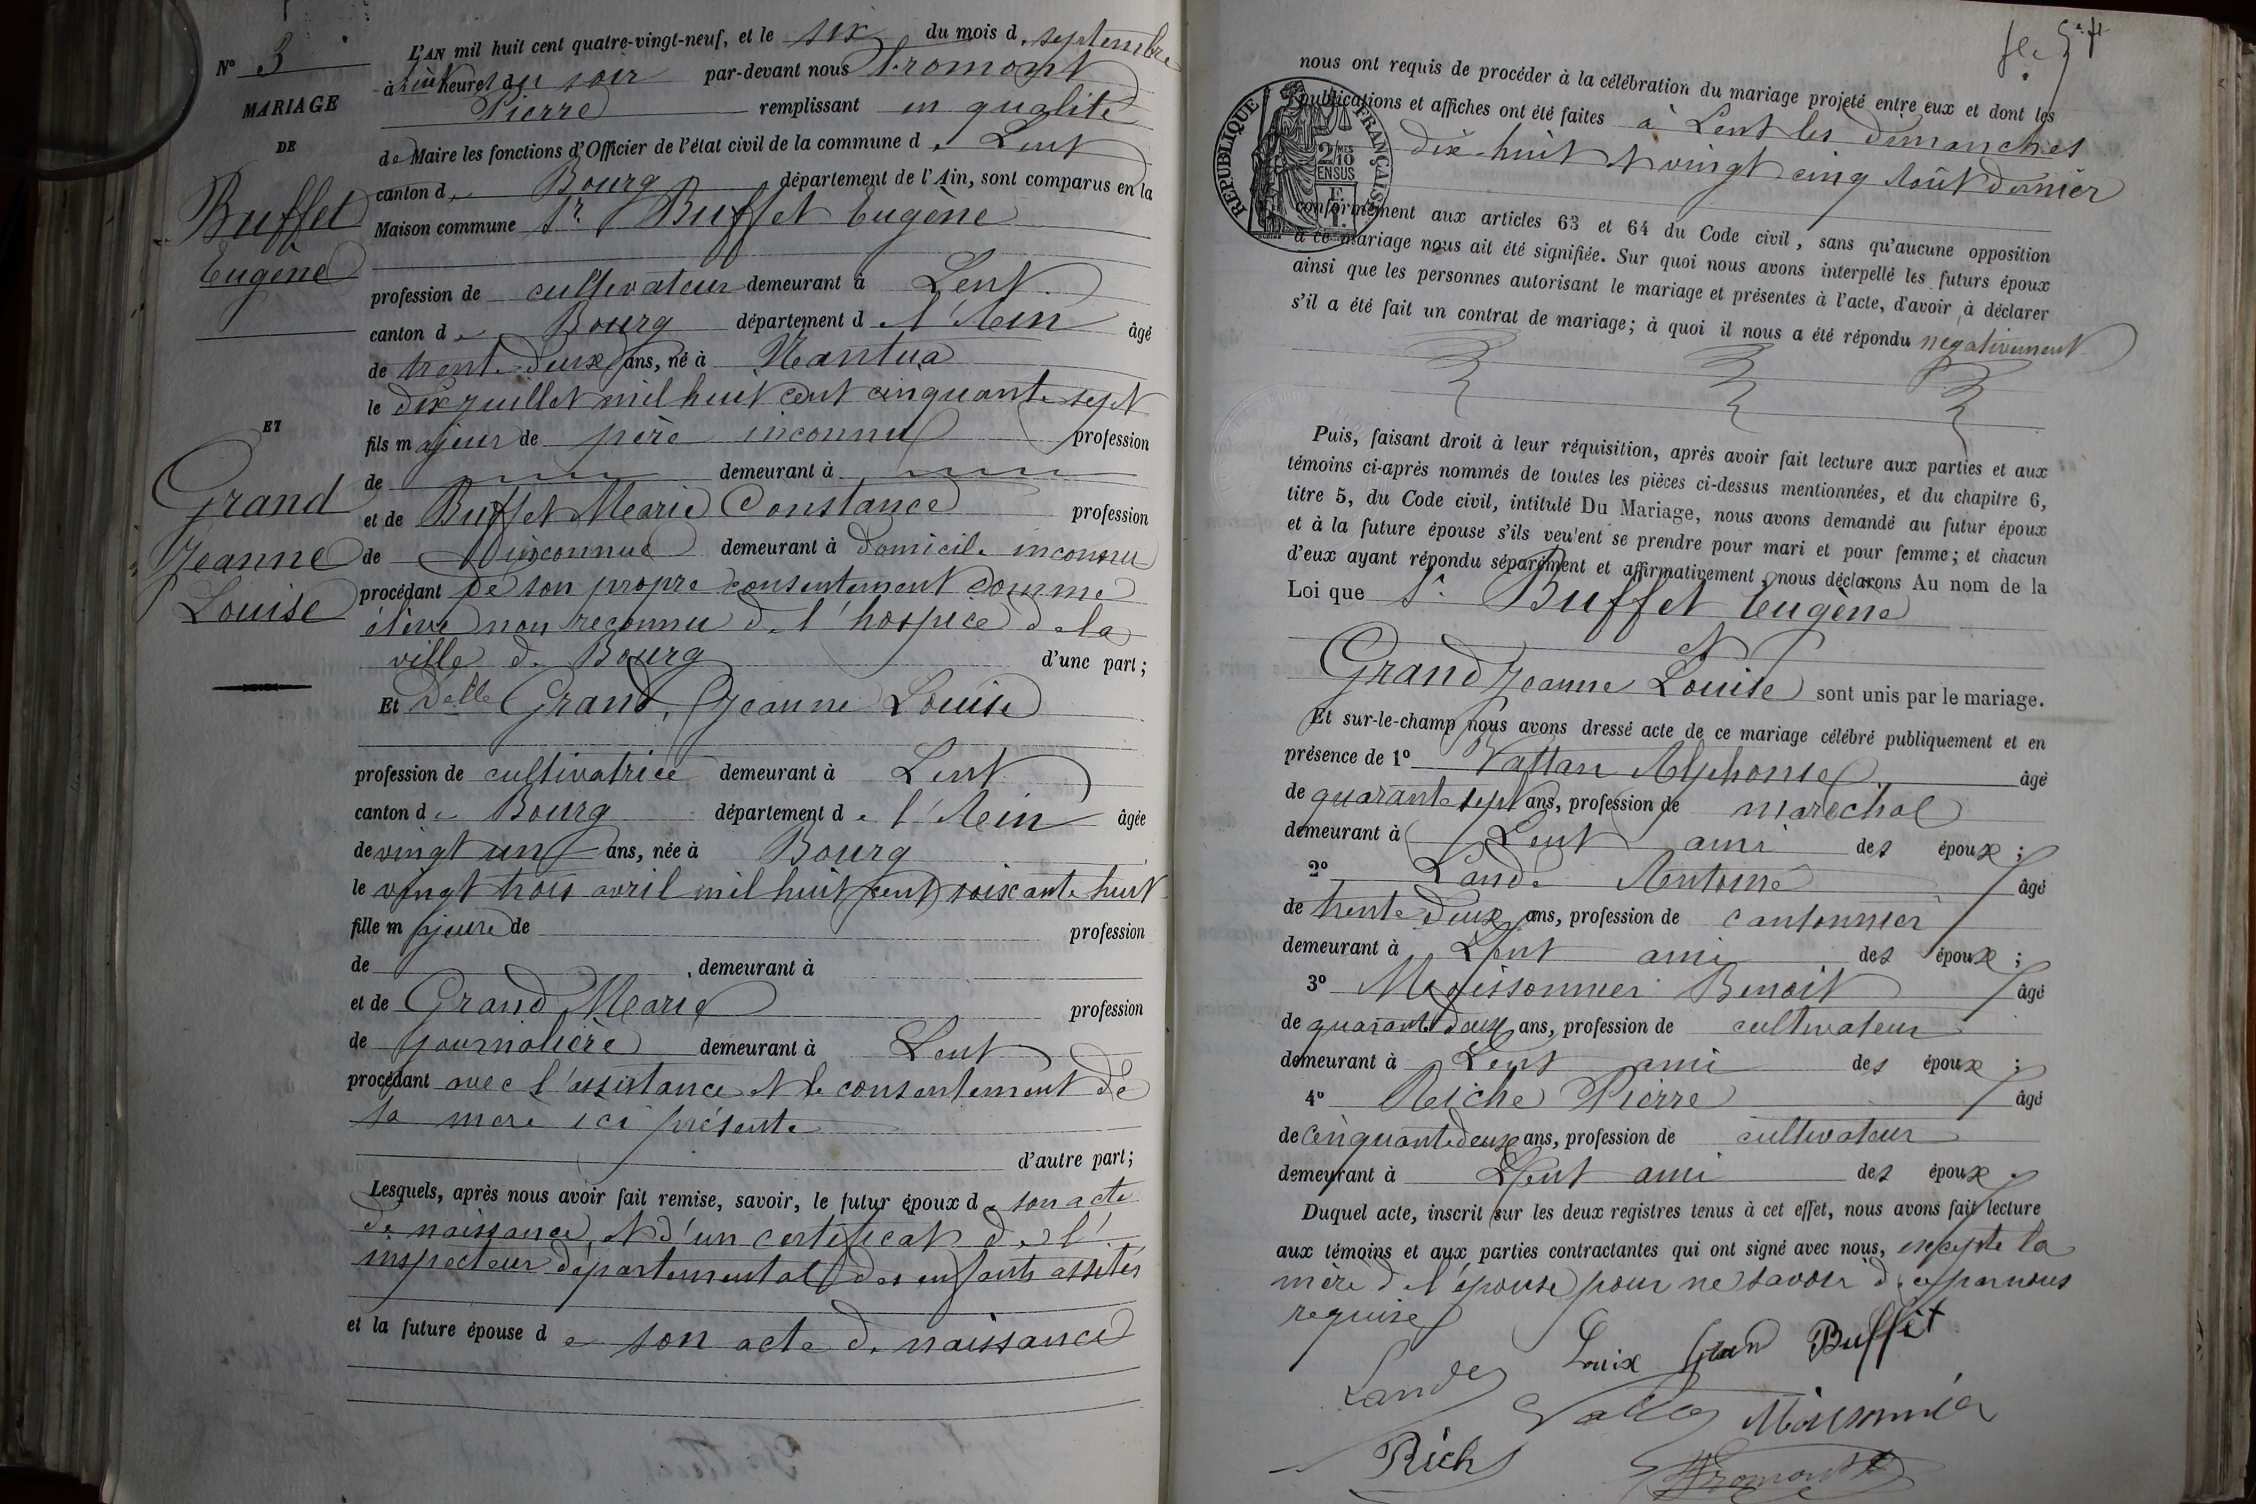 N° 3
MARIAGE
DE
Buffet
Eugène
ET
Grand
Jeanne
Louise
L'AN mil huit cent quatre-vingt-neuf, et le six du mois d e septembre
à heures du soir par-devant nous Fromont
Pierre remplissant en qualité
de Maire les fonctions d'Officier de l'état civil de la commune d e Lent
canton d e Bourg département de l'Ain, sont comparus en la
Maison commune Sr. Buffet Eugène
profession de cultivateur demeurant à Lent
canton d e Bourg département d e l'Ain âgé
de trente deux ans, né à Nantua
le dix juillet mil huit cent cinquante sept
fils majeur de père inconnu profession
de demeurant à
et de Buffet Marie Constance profession
de inconnue demeurant à domicile inconnu
procédant de son propre consentement comme
élève non reconnu de l'hospice de la
ville de Bourg d'une part;
Et Delle Grand, Jeanne Louise
profession de cultivatrice demeurant à Lent
canton d e Bourg département d e l'Ain âgée
de vingt un ans, née à Bourg
le vingt trois avril mil huit cent soixante huit
fille majeure de profession
de demeurant à
et de Grand Marie profession
de journalière demeurant à Lent
procédant avec l'assistance et le consentement de
sa mère ici présente
d'autre part;
Lesquels, après nous avoir fait remise, savoir, le futur époux d e son acte
de naissance et d'un certificat de l'
inspecteur départemental des enfants assistés
et la future épouse d e son acte de naissance
nous ont requis de procéder à la célébration du mariage projeté entre eux et dont les
publications et affiches ont été faites à Lent les dimanches
dix-huit et vingt cinq Août dernier
REPUBLIQUE FRANÇAISE
2/10 MES
EN SUS
conformément aux articles 63 et 64 du Code civil, sans qu'aucune opposition
à ce mariage nous ait été signifiée. Sur quoi nous avons interpellé les futurs époux
ainsi que les personnes autorisant le mariage et présentes à l'acte, d'avoir à déclarer
s'il a été fait un contrat de mariage; à quoi il nous a été répondu négativement
Puis, faisant droit à leur réquisition, après avoir fait lecture aux parties et aux
témoins ci-après nommés de toutes les pièces ci-dessus mentionnées, et du chapitre 6,
titre 5, du Code civil, intitulé Du Mariage, nous avons demandé au futur époux
et à la future épouse s'ils veulent se prendre pour mari et pour femme; et chacun
d'eux ayant répondu séparément et affirmativement, nous déclarons Au nom de la
Loi que Sr. Buffet Eugène
et
Grand Jeanne Louise sont unis par le mariage.
Et sur-le-champ nous avons dressé acte de ce mariage célébré publiquement et en
présence de 1° Alphonse âgé
de quarante sept ans, profession de maréchal
demeurant à Lent ami des époux;
2° Lande Antoine âgé
de trente deux ans, profession de cantonnier
demeurant à Lent ami des époux;
3° Benoit âgé
de quarante deux ans, profession de cultivateur
demeurant à Lent ami des époux;
4° Reiche Pierre âgé
de cinquante deux ans, profession de cultivateur
demeurant à Lent ami des époux.
Duquel acte, inscrit sur les deux registres tenus à cet effet, nous avons fait lecture
aux témoins et aux parties contractantes qui ont signé avec nous, excepté la
mère de l'épouse pour ne savoir de ce par nous
requise
Buffet
Lande
Fromont